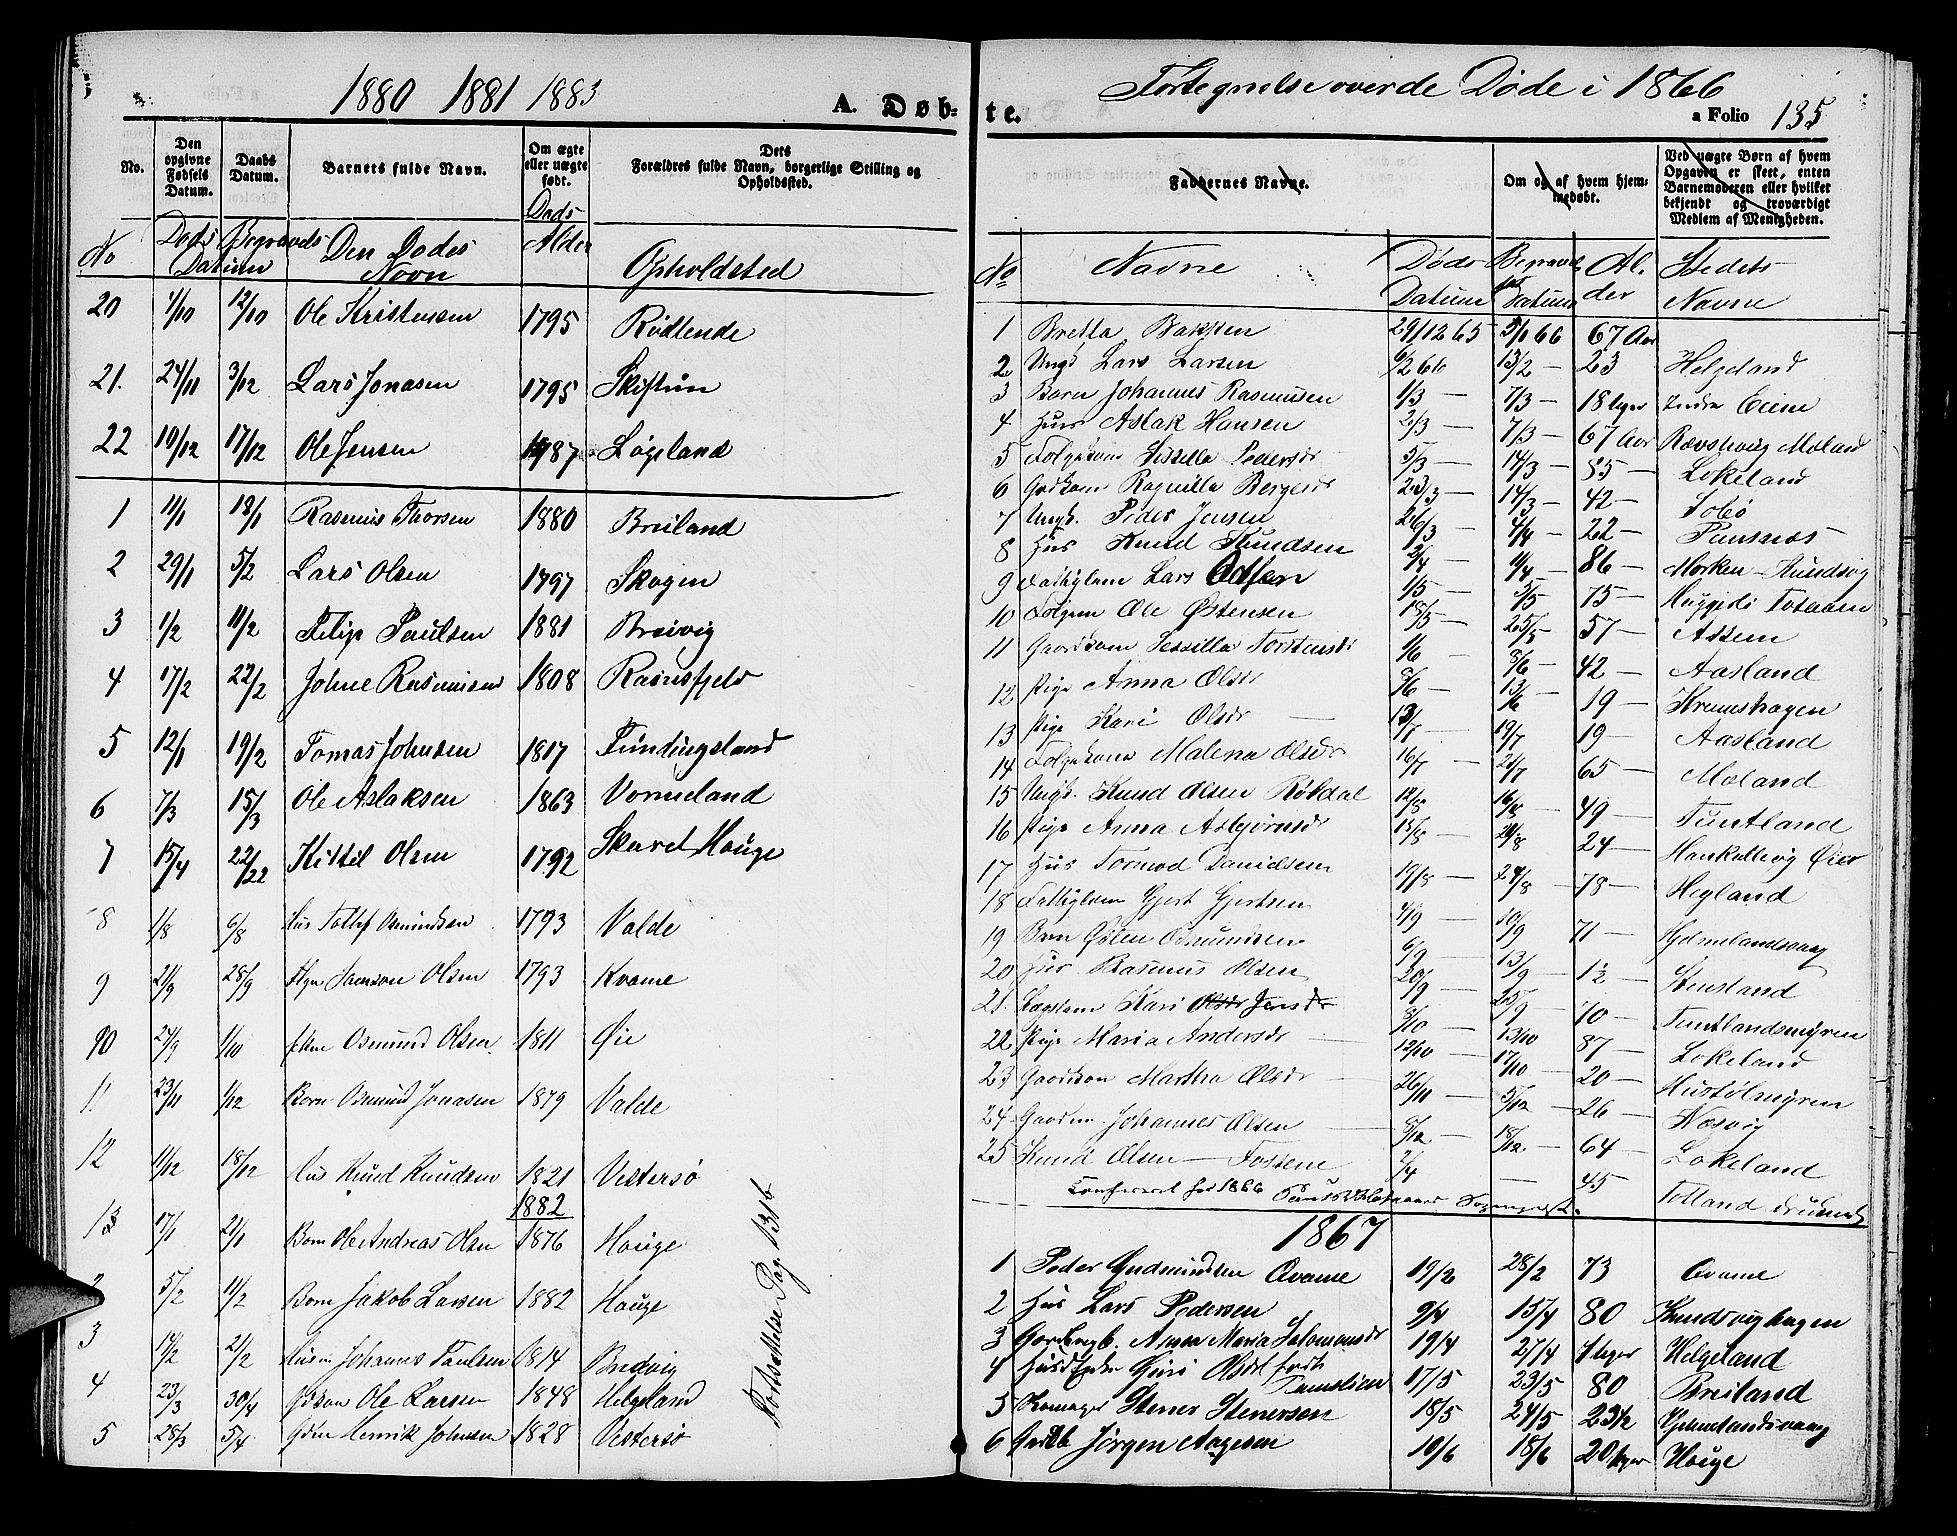 1880 1881 1883
A. Døb-
No.
Den opgivne Fødsels Datum.
Daabs Datum.
Barnets fulde Navn.
Om ægte eller uægte født.
Dets Forældres fulde Navn, borgerlige Stilling og Opholdssted.
No Døds Begravels Datum Den Dødes Navn Døds Alder Opholdsted
20 1/10 12/10 Ole Kristensen 1795 Rødtende
21. 24/11 3/12 Lars Jonasen 1795 Skiftun
22 10/12 17/12 Ole Jensen 1787 Løgeland
1 11/1 18/1 Rasmus Thorsen 1880 Breiland
2 29/1 5/2 Lars Olsen 1797 Skogen
3 1/2 11/2 Filip Paulsen 1881 Breivig
4 17/2 22/2 Johne Rasmusen 1808 Ravnsfjeld
5 12/1 19/2 Tomas Johnsen 1817 Fundingsland
6 7/3 15/3 Ole Aslaksen 1863 Vormeland
7 15/4 22/22 Kittil Olsen 1792 Skaret Houge
8 1/8 6/8 Hus Tollef Osmundsen 1793 Valde
9 21/9 28/9 Samson Olsen 1793 Kvame
10 24/9 1/10 Osmund Olsen 1811 Øie
11 23/11 1/12 Barn Osmund Jonasen 1879 Valde
12 11/12 18/12 Hus Knud Knudsen 1821 Vestersø
1882
13 17/1 21/1 Barn Ole Andreas Olsen 1876 Houge
2 5/2 11/2 Barn Jakob Larsen 1882 Houge
3 14/2 21/2 Husm Johannes Paulsen 1814 Bredvig
4 23/3 30/4 Ole Larsen 1848 Helgeland
5 28/3 5/4 Henrik Johnsen 1828 Vestersø
Fortsættelse Pag. 136
Fortegnelse over de Døde i 1866
te.
a Folio 135
Faddernes Navne.
Om og af hvem hjemmedøbt.
Ved uægte Børn af hvem Opgaven er skeet, enten Barnemoderen eller hvilket bekjendt og troværdigt Medlem af Menigheden.
No Navne Døds Datum Begravels Datum Alder Stedets Navne
1 Bretta Baksten 29/12 65 5/1 66 67 Aar
2 Ungk Lars Larsen 6/2 66 13/2 – 23 Helgeland
3 Barn Johannes Rasmusen 1/3 – 7/3 – 18 uger Indre Eiene
4 Hus Aslak Hansen 2/3 – 7/3 – 67 Aar Rævshvig Moland
5 Folgekone Sissilla Pedersdr 5/3 – 14/3 – 85 – Lokeland
6 Gadkone Ragnilla Bergesdr 14/3 – 42 – Sobø
7 Ungk. Peder Jensen 26/3 – 4/4 – 22 –
8 Hus Knud Knudsen 2/4 – 9/4 – 86 – Morken Kundsvg
9 Fattiglem Lars Odsen 1/5 – 5/5 – 75 –
10 Folgem Ole Østensen 18/5 – 25/5 – 57 – Assem
11 Gaardkone Sessilla Torstensdr 1/6 8/6 – 42 – Aasland
12 Pige Anna Olsdr 8/6 – 13/6 19 – Kremshagen
13 Pige Kari Olsdr – 13/7 – 19/7 19 – Aasland
14 Folgekone Malena Olsdr 16/7 – 21/7 65 – Moland
15 Ungk. Knud Olsen Røkdal 12/8 16/8 – 49 – Tuntland
16 Pige Anna Asbjørnsdr 15/8 – 20/8 24 – Hankellevig Øier
17 Hus Tormod Danidsen 19/8 – 24/8 78 – Hegland
18 Fattiglem Gjert Gjertsen 4/9 – 10/9 71 – Hjelmelandsvaag
19 Barn Østen Osmundsen 6/9 – 13/9 1½ – Stensland
20 Hus Rasmus Olsen 20/9 – 25/9 70 – Tuntlandsmyren
21. Lægslem Kari Olsdr Jensdr 8/10 – 13/10 87 – Lokeland
22 Pige Maria Andersdr – 12/10 – 17/10 20 – Hustølmyren
23 Gaardkone Martha Olsdr – 26/11 – 5/12 – 26 – Næsvig
24 Gaardm. Johannes Olsen – 8/12 – 18/12. – 64 – Lokeland
25 Knud Olsen – Fossene 2/4 – 45 – Tolland
Confereret for 1866
1867
1 Peder Gudmundsen Qvame 19/2 28/2 73 Qvame
2 Hus Lars Pedersen 9/4 15/4 80 Knudsvighagen
3 Anna Maria Salomonsdr 19/4 27/4 4 uger Helgeland
4 HusdEnke Guri Olsdt født Tamslien 17/5 23/5 80 Breiland
5 Stener Stenersen 18/5 24/5 23½ Hjelmelandsvaag
6 Jørgen Aagesen 10/6 18/6 20 uger Houge